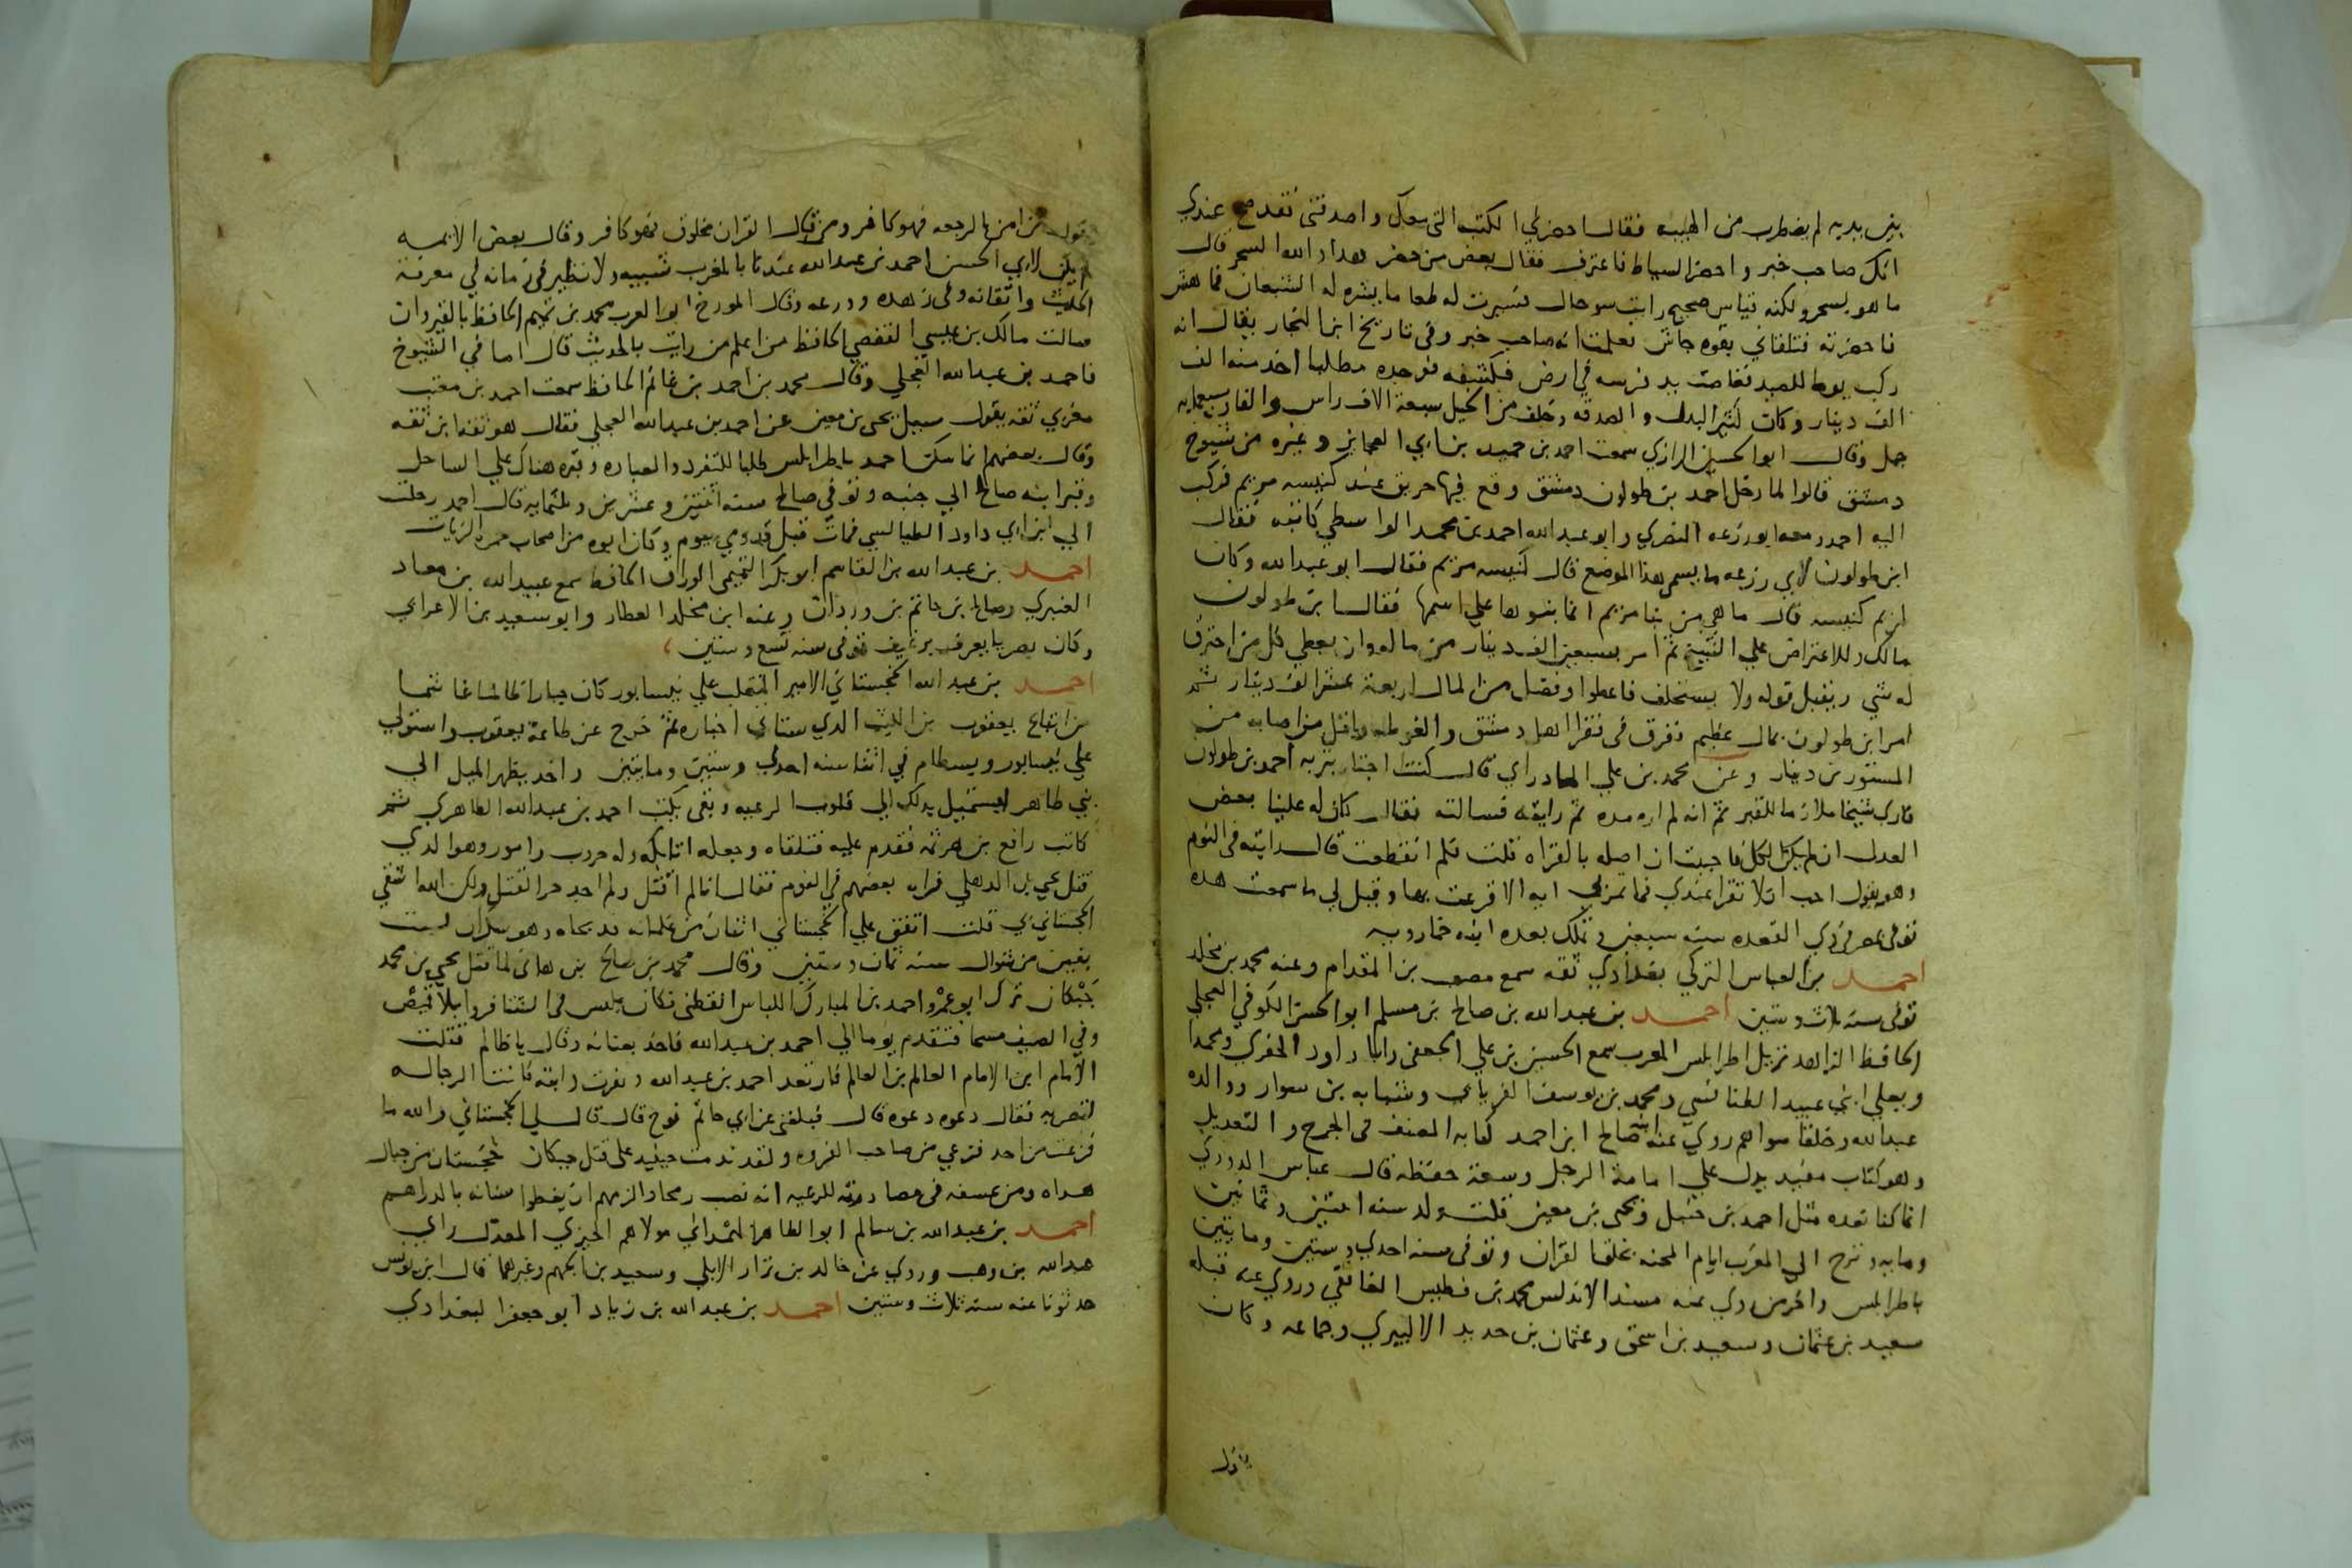 بين يديه لم يضطرب من الهيبه فقال احضر لي الكتب التي معك واصدقني فقد صح عندي
انك صاحب خبر واحضر السياط فاعترف فقال بعض من حضر هدا والله السحر قال
ما هو بسحر ولكنه قياس صحيح رايت سو حال فسيرت له طعاما يشره له الشبعان فما هش
فاحضرته فتلقاني بقوه جاش فعلمت انه صاحب خبر وفي تاريخ ابن النجار يقال انه
ركب يوما للصيد فغاصت يد فرسه في ارض فكشفه فوجده مطلبا اخد منه الف
الف دينار وكان كثير البدل والصدقه وخلف من الخيل سبعة الاف راس والفا وسبعمايه
جمل وقال ابو الحسين الرازي سمعت احمد بن حميد بن ابي العجايز وغيره من شيوخ
دمشق قالوا لما دخل احمد بن طولون دمشق وقع فيها حريق عند كنيسه مريم فركب
اليه احمد ومعه ابو زرعه النصري وابو عبد الله احمد بن محمد الواسطي كاتبه فقال
ابن طولون لابي زرعه ما يسمى هذا الموضع قال كنيسه مريم فقال ابو عبد الله وكان
لمريم كنيسه قال ما هي من بنا مريم انما بنوها على اسمها فقال ابن طولون
مالك وللاعتراض على الشيخ ثم امر بسبعين الف دينار من ماله وان يعطي كل من احترق
له شي ويقبل قوله ولا يستحلف فاعطوا وفضل من المال اربعة عشر الف دينار ثم
امر ابن طولون بمال عظيم ففرق في فقرا اهل دمشق والغوطه واقل من اصابه من
المستورين دينار وعن محمد بن علي المادراي قال كنت اجتاز بتربه احمد بن طولون
فارى شيخا ملازما للقبر ثم انه لم اره مده ثم رايته فسالته فقال كان له علينا بعض
العدل ان لم يكن الكل فاحببت ان اصله بالقراه قلت فلم انقطعت قال رايته في النوم
وهو يقول احب ان لا تقرا عندي فما تمر بي ايه الا قرعت بها وقيل لي ما سمعت هده
توفي بمصر في دي القعده سنه سبعين وتملك بعده ابنه خمارويه
احمد بن العباس التركي بغدادي ثقه سمع مصعب بن المقدام وعنه محمد بن مخلد
توفي سنه ثلاث وستين احمد بن عبد الله بن صالح بن مسلم ابو الحسن الكوفي العجلي
الحافظ الزاهد نزيل اطرابلس المغرب سمع الحسين بن علي الجعفي وابا داود الحفري ومحمدا
ويعلى ابني عبيد الطنافسي ومحمد بن يوسف الفريابي وشبابه بن سوار ووالده
عبد الله وخلقا سواهم روي عنه ابنه صالح ابن احمد كتابه المصنف في الجرح والتعديل
وهو كتاب مفيد يدل على امامة الرجل وسعة حفظه قال عباس الدوري
انما كنا نعده مثل احمد بن حنبل ويحيى بن معين قلت ولد سنه اثنتين وثمانين
ومايه ونزح الي المغرب ايام المحنه بخلق القران وتوفي سنه احدي وستين ومايتين
باطرابلس واخر من روي عنه مسند الاندلس محمد بن فطيس الغافقي وروي عنه قبله
سعيد بن عثمان وسعيد بن اسحق وعثمان بن حديد الالبيري وجماعه وكان
يقول
يقول من امن بالرجعه فهو كافر ومن قال القران مخلوق فهو كافر وقال بعض الايمه
لم يكن لابي الحسن احمد بن عبد الله عندنا بالمغرب شبيه ولا نظير في زمانه في معرفة
الحديث واتقانه وفي زهده وورعه وقال المورخ ابو العرب محمد بن تميم الحافظ بالقيروان
سالت مالك بن عيسي القفصي الحافظ من اعلم من رايت بالحديث قال اما في الشيوخ
فاحمد بن عبد الله العجلي وقال محمد بن احمد بن غانم الحافظ سمعت احمد بن معتب
مغربي ثقه يقول سيل يحيى بن معين عن احمد بن عبد الله العجلي فقال هو ثقه ابن ثقه
وقال بعضهم انما سكن احمد باطرابلس طلبا للتفرد والعباده وقبره هناك علي الساحل
وقبر ابنه صالح الي جنبه وتوفي صالح سنه اثنتين وعشرين وثلثمايه قال احمد رحلت
الي ابي داود الطيالسي فمات قبل قدومي بيوم وكان ابوه من اصحاب حمزه الزيات
احمد بن عبد الله بن القاسم ابو بكر التميمي الوراق الحافظ سمع عبيد الله بن معاد
العنبري وصالح بن حاتم بن وردان وعنه ابن مخلد العطار وابو سعيد بن الاعرابي
وكان بصريا يعرف برغيف توفي سنه تسع وستين
احمد بن عبد الله الخجستاني الامير المتغلب علي نيسابور كان جبارا ظالما غاشما
من اتباع يعقوب بن الليث الدي ستاتي اخباره ثم خرج عن طاعة يعقوب واستولي
علي نيسابور وبسطام في اثنا سنه احدي وستين ومايتين واخد يظهر الميل الي
بني طاهر ليستميل بدلك الي قلوب الرعيه وبقي يكتب احمد بن عبد الله الطاهري ثم
كاتب رافع بن هرثمه فقدم عليه فتلقاه وجعله اتابكه وله حروب وامور وهو الدي
قتل يحيى بن الدهلي فراه بعضهم في النوم فقال انا لم اقتل ولم اجد حر القتل ولكن الله اشقي
الخجستاني بي قلت اتفق علي الخجستاني اثنان من غلمانه فدبحاه وهو سكران لست
بقين من شوال سنه ثمان وستين وقال محمد بن صالح بن هانئ لما قتل يحيى بن محمد
حيكان ترك ابو عمرو احمد بن المبارك اللباس القطني فكان يلبس في الشتا فروا بلا قميص
وفي الصيف مسحا فتقدم يوما الي احمد بن عبد الله فاخذ بعنانه وقال يا ظالم قتلت
الامام ابن الامام العالم بن العالم فارتعد احمد بن عبد الله ونفرت دابته فاتت الرجاله
لتضربه فقال دعوه دعوه قال فبلغني عن ابي حاتم نوح قال قال لي الخجستاني والله ما
فزعت من احد فزعي من صاحب الفروه ولقد ندمت حينيد على قتل حيكان خجستان من جبال
هراه ومن عسفه في مصادرته للرعيه انه نصب رمحا والزمهم ان يغطوا سنانه بالدراهم
احمد بن عبد الله بن سالم ابو الطاهر الهمداني مولاهم الجيزي المعدل راي
عبد الله بن وهب وروي عن خالد بن نزار الايلي وسعيد بن الجهم وغيرهما قال ابن يونس
حدثونا عنه سنه ثلاث وستين احمد بن عبد الله بن زياد ابو جعفر البغدادي